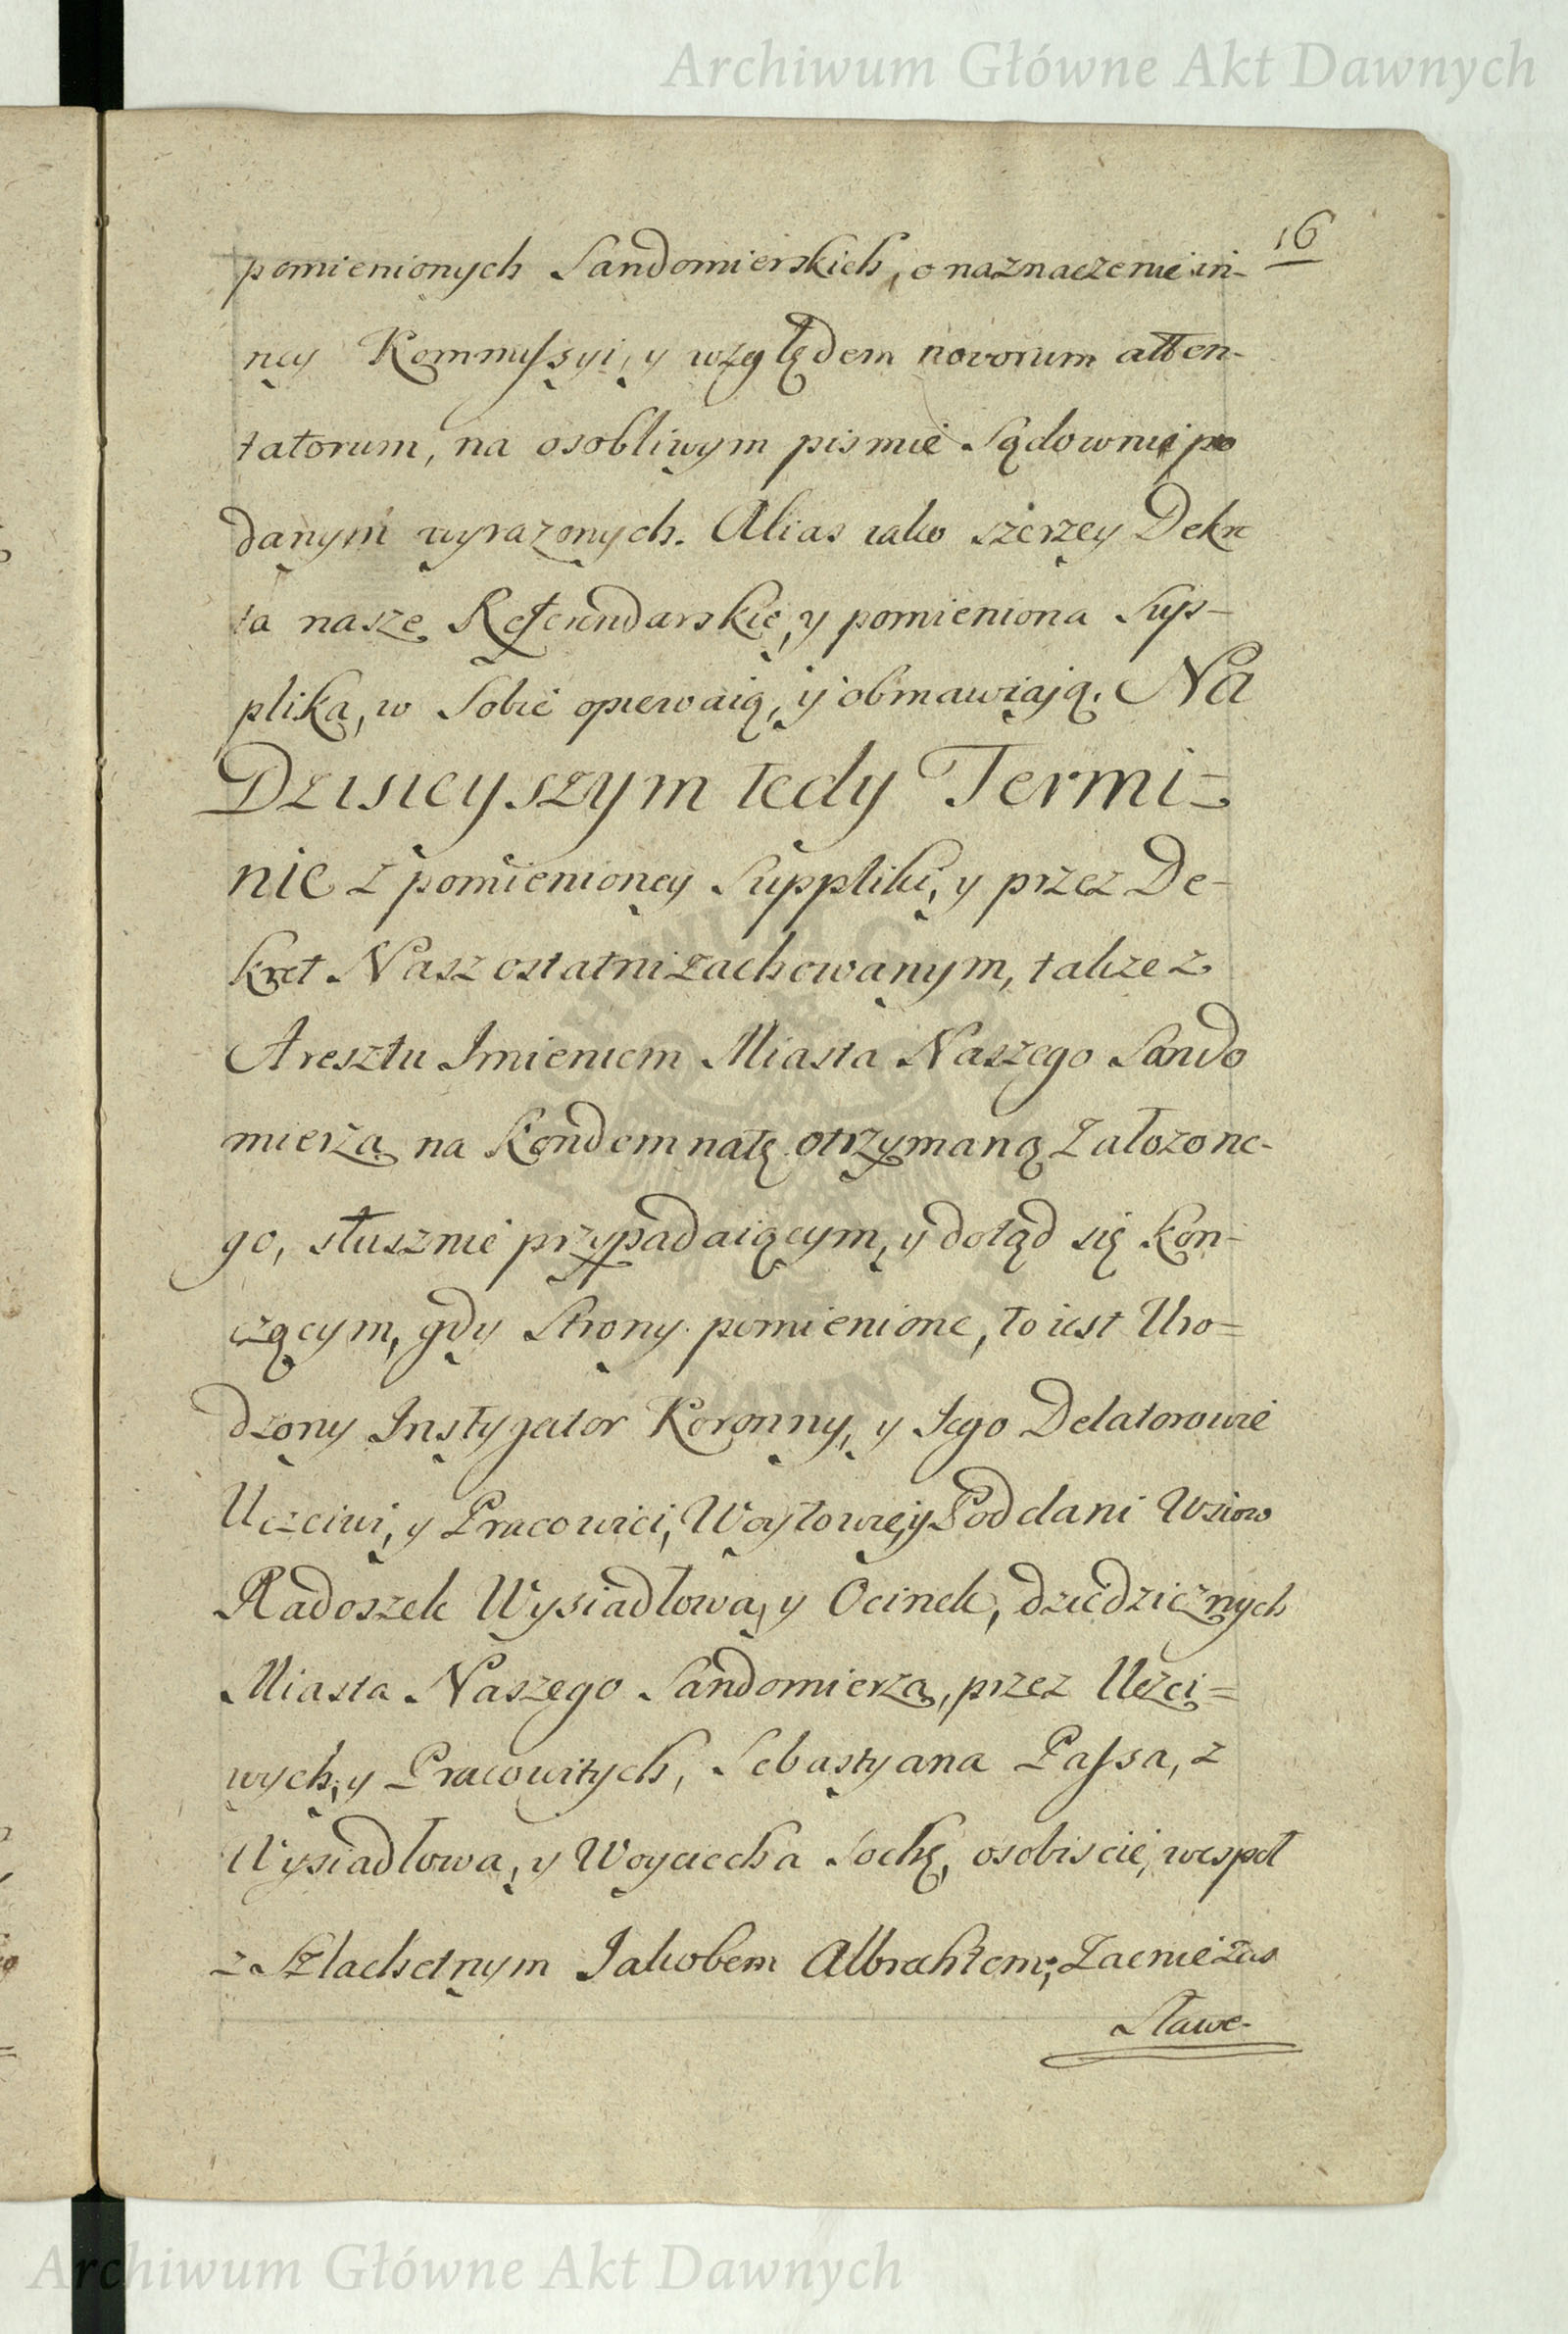 Archiwum Główne Akt Dawnych
16
pomienionych Sandomierskich, o naznaczenie in-
ney Kommissyi, y względem novorum atten-
tatorum, na osobliwym pismie Sądownie po
danym wyrazonych. Alias iako szerzey Dekre
ta nasze Referendarskie, y pomieniona Sup-
plika, w Sobie opiewaią, y obmawiają. Na
Dzisieyszym tedy Termi=
nie z pomienioney Suppliki, y przez De-
kret Nasz ostatni zachowanym, także z
Aresztu Imieniem Miasta Naszego Sando
mierza na Kondemnatę otrzymaną Założone-
go, słusznie przypadaiącym, y dotąd się kon-
czącym, gdy Strony pomienione, to iest Uro=
dzony Instygator Koronny, y Jego Delatorowie
Uczciwi, y Pracowici, Woytowie, y Poddani Wsiow
Radoszek Wysiadłowa, y Ocinek, dziedzicznych
Miasta Naszego Sandomierza, przez Uczci=
wych, y Pracowitych, Sebastyana Passa, z
Wysiadłowa, y Woyciecha Sochę, osobiscie, wespoł
z Szlachetnym Jakobem Albrahtem; Zacnie zas
Sławe-
Archiwum Główne Akt Dawnych